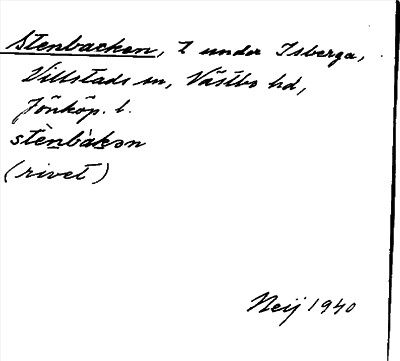 Stenbacken, t under Isberga,
Villstads sn, Västbo hd,
Jönköp. l.
stènbàkən
(rivet)
Neij 1940